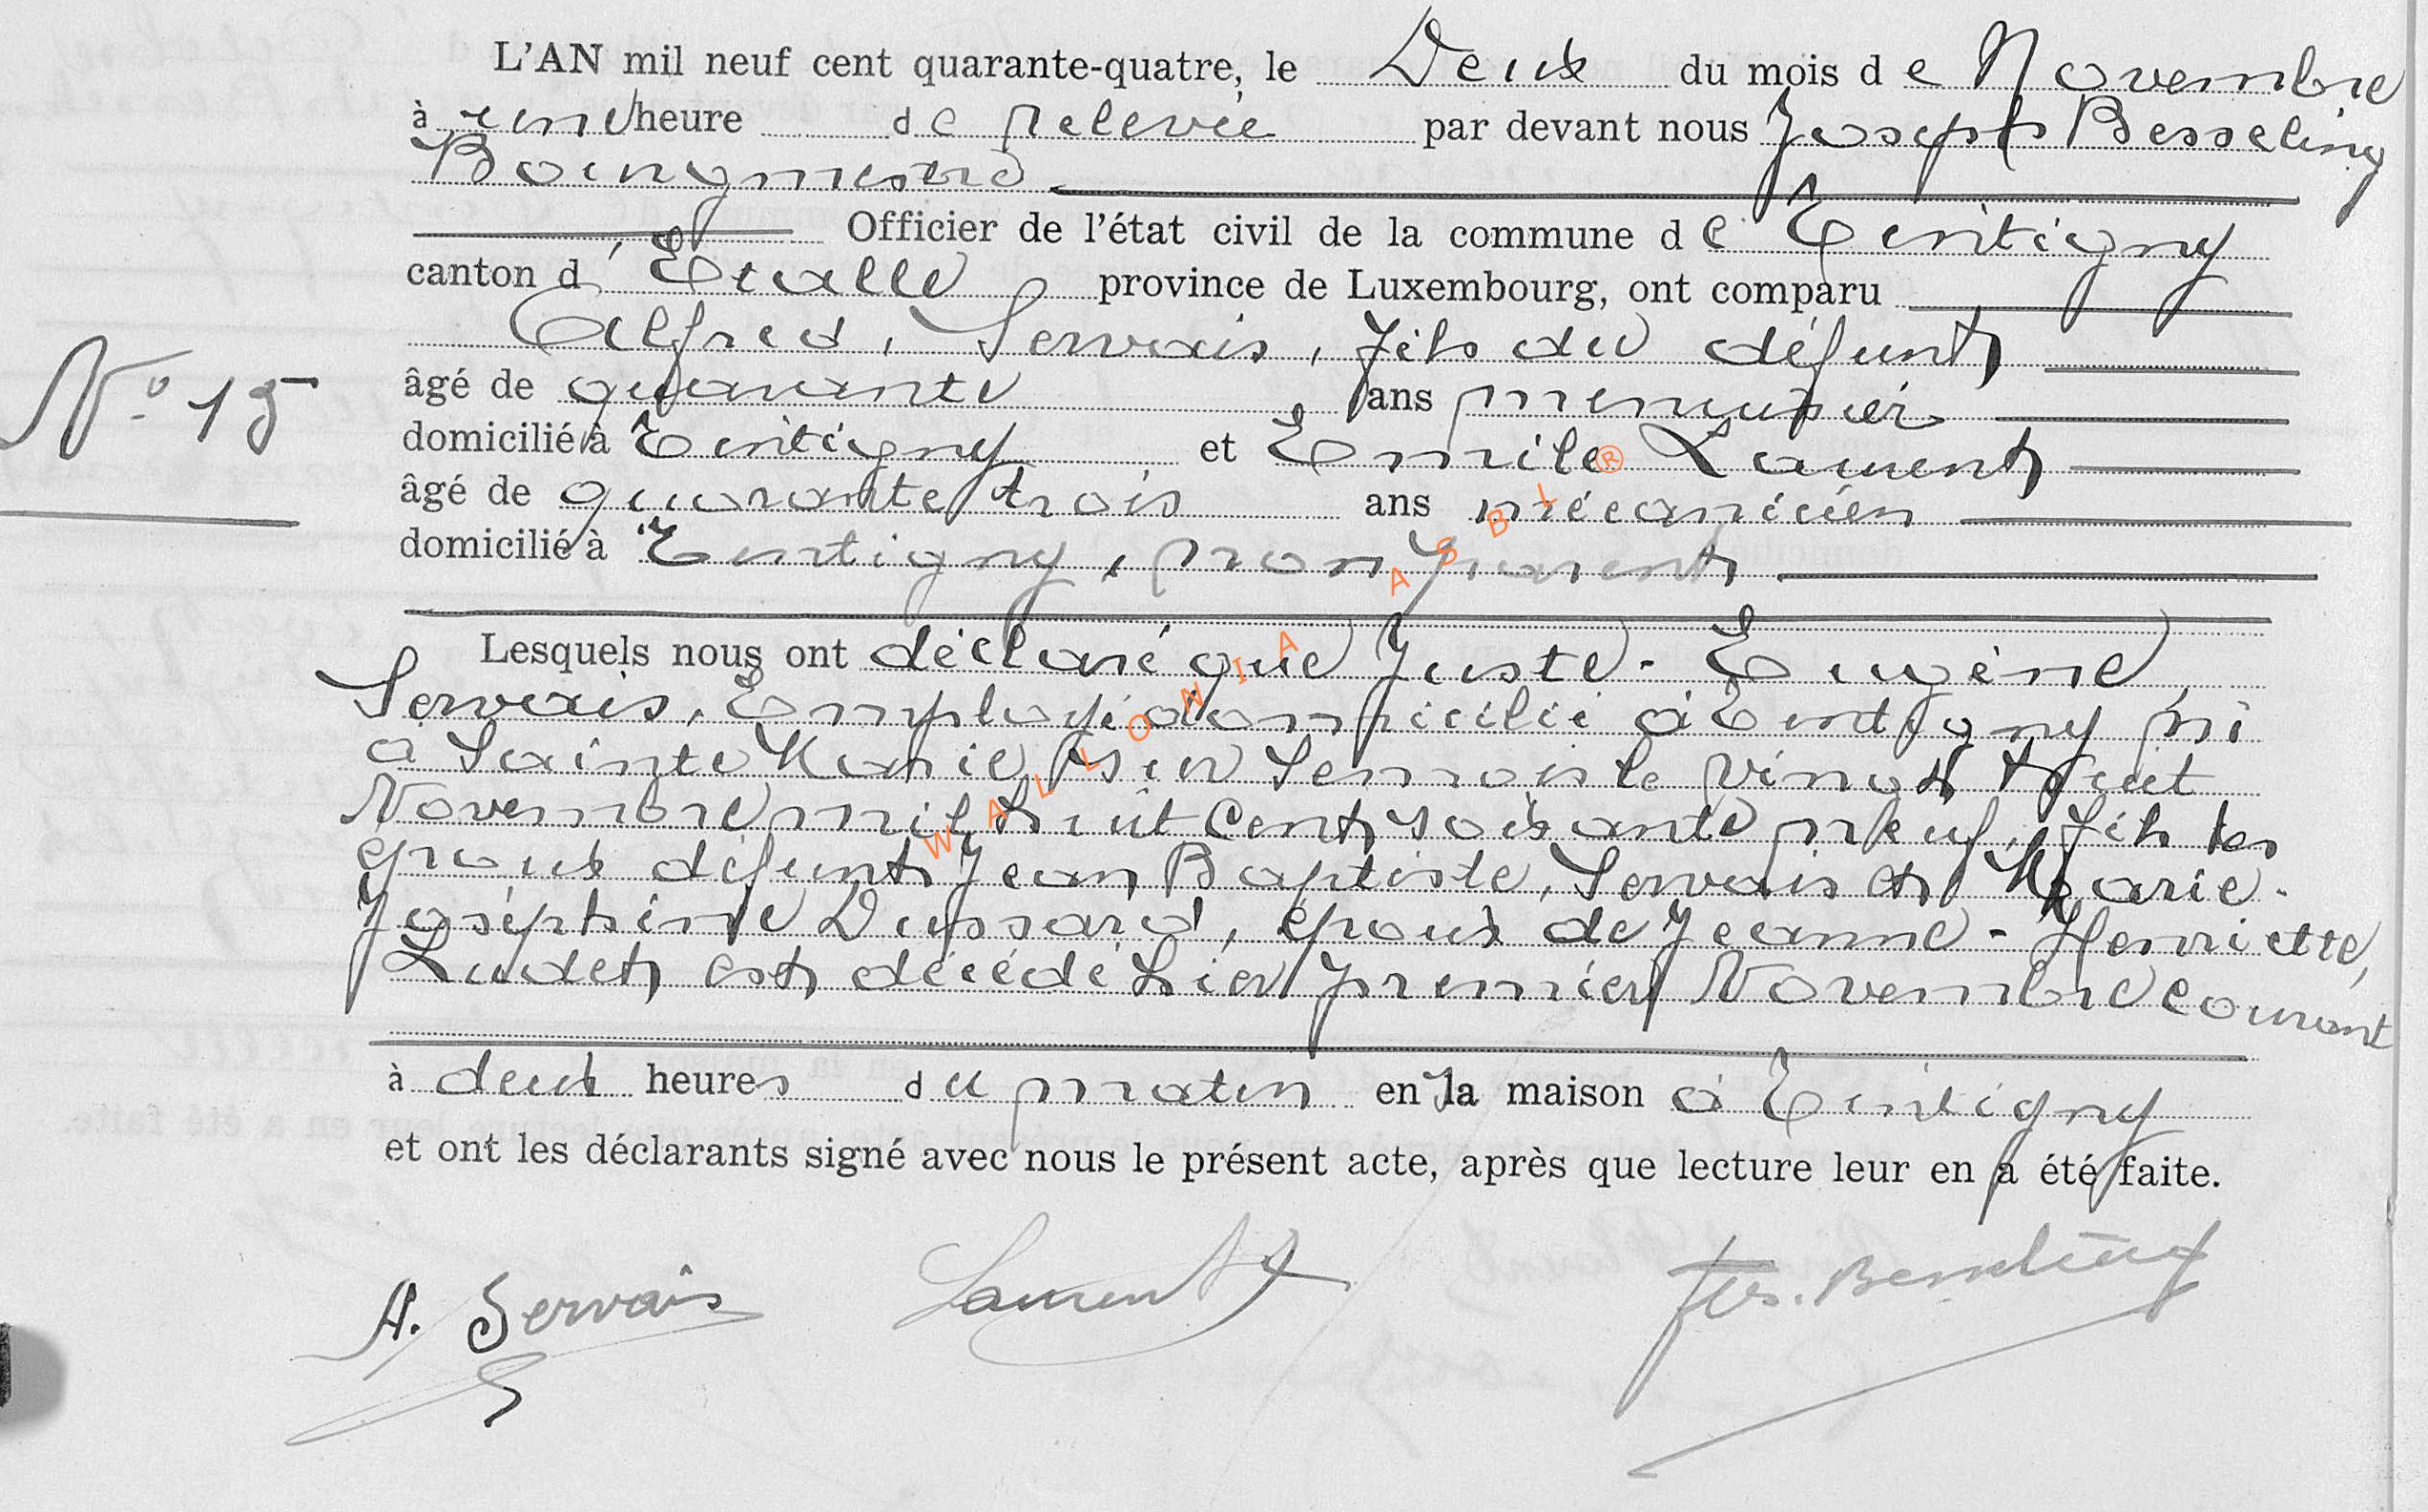 L'AN mil neuf cent quarante-quatre, le Deux du mois de Novembre
à une heure de relevée par devant nous Joseph Besseling
Bourgmestre
Officier de l'état civil de la commune de Tintigny
canton d'Etalle province de Luxembourg, ont comparu
Alfred, Servais, fils du défunt
âgé de quarante ans menuisier
domicilié à Tintigny et Emile Laurent
N° 15
âgé de quarante trois ans mécanicien
domicilié à Tintigny, non parent
Lesquels nous ont déclaré que Juste-Eugène,
Servais, Employé domicilié à Tintigny né
a Sainte Marie sur Semois le vingt huit
Novembre mil huit cent soixante neuf, fils des
époux défunts Jean Baptiste, Servais et Marie-
Joséphine Dussard, époux de Jeanne-Henriette,
Ludet est décédé hier premier Novembre courant
à deux heures du matin en la maison à Tintigny
et ont les déclarants signé avec nous le présent acte, après que lecture leur en a été faite.
A. Servais Laurent Jos. Besseling
WALLONIA ASBL ®